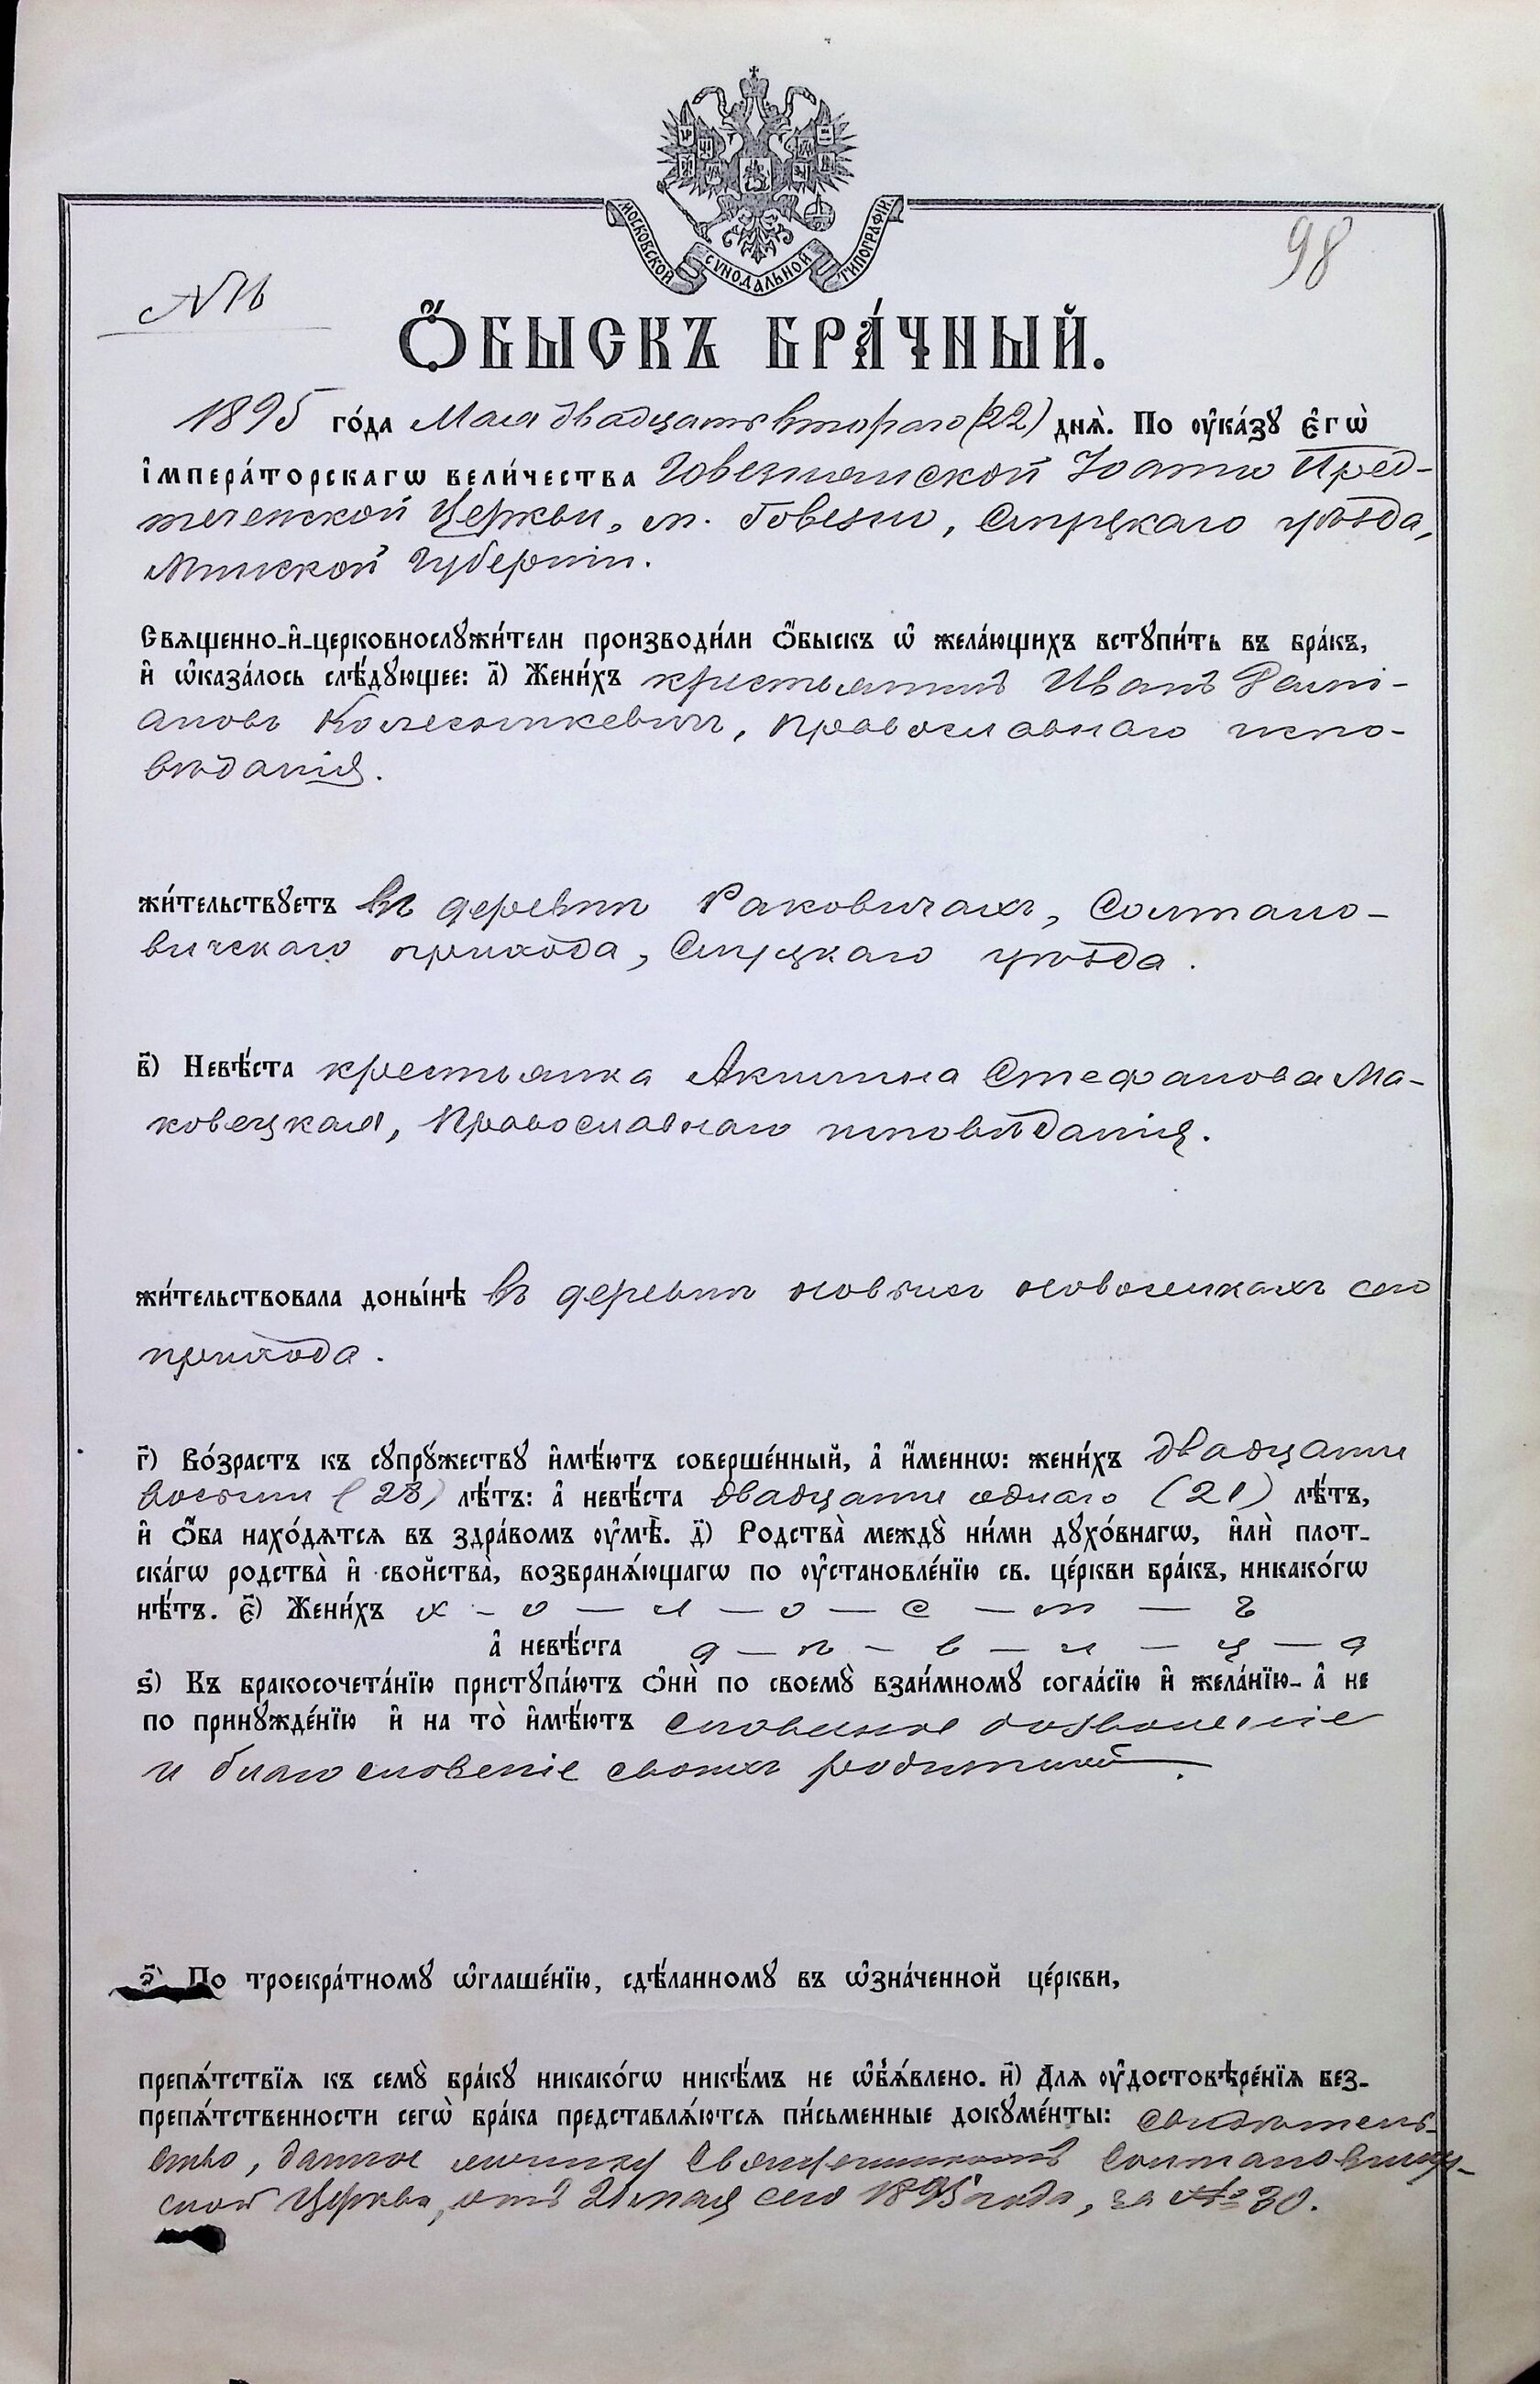 МОСКОВСКОЙ СѴНОДАЛЬНОЙ ТИПОГРАФІИ
98
№ 16
Ѻ҆БЫСКЪ БРА́ЧНЫЙ.
1895 го́да Мая двадцать втораго (22) днѧ̀. По ᲂу҆ка́зꙋ Є҆гѡ̀
і҆мпера́торскагѡ вели́чества Говезнянской Іоанно Пред-
теченской Церкви, м. Говезно, Слуцкаго уѣзда,
Минской Губерніи.
Свѧщенно-и҆-церковнослꙋжи́тели производи́ли ѻ҆́быскъ ѡ҆ жела́ющихъ встꙋпи́ть въ бра́къ,
и҆ ѡ҆каза́лось слѣ́дꙋющее: а҃) Жени́хъ крестьянинъ Иванъ Деми-
ановъ Колесинкевичъ, православнаго испо-
вѣданія.
жи́тельствꙋетъ въ деревнѣ Раковичахъ, Солтано-
вичскаго прихода, Слуцкаго уѣзда.
в҃) Невѣ́ста крестьянка Акилина Стефанова Ма-
ковецкая, Православнаго исповѣданія.
жи́тельствовала доны́нѣ въ деревнѣ новыхъ новоселкахъ сего
прихода.
г҃) Во́зрастъ къ сꙋпрꙋ́жествꙋ и҆мѣ́ютъ соверше́нный, а҆ и҆́меннѡ: жени́хъ двадцати
восьми (28) лѣ́тъ: а҆ невѣ́ста двадцати однаго (21) лѣ́тъ,
и҆ ѻ҆́ба нахо́дѧтсѧ въ здра́вомъ ᲂу҆мѣ̀. д҃) Родства̀ междꙋ̀ ни́ми дꙋхо́внагѡ, и҆лѝ плот-
ска́гѡ родства̀ и҆ свойства̀, возбранѧ́ющагѡ по ᲂу҆становле́нїю св. це́ркви бра́къ, никако́гѡ
нѣ́тъ. є҃) Жени́хъ х - о - л - о - с - т - ъ
а҆ невѣ́ста д - ѣ - в - и - ц - а
ѕ҃) Къ бракосочета́нїю пристꙋпа́ютъ ѻ҆нѝ по своемꙋ̀ взаи́мномꙋ согла́сїю и҆ жела́нїю- а҆ не
по принꙋжде́нїю и҆ на то̀ и҆мѣ́ютъ словесное дозволеніе
и благословеніе своихъ родителей.
з҃) По троекра́тномꙋ ѡ҆глаше́нїю, сдѣ́ланномꙋ въ ѡ҆зна́ченной це́ркви,
препѧ́тствїѧ къ семꙋ̀ бра́кꙋ никако́гѡ никѣ́мъ не ѡ҆б̾ѧ́влено. и҃) Длѧ ᲂу҆достовѣре́нїѧ без-
препѧ́тственности сегѡ̀ бра́ка представлѧ́ютсѧ пи́сьменные докꙋме́нты: свидѣтель-
ство, данное жениху Священникомъ Солтановичж-
ской Церкви, отъ 21 мая сего 1895 года, за № 30.